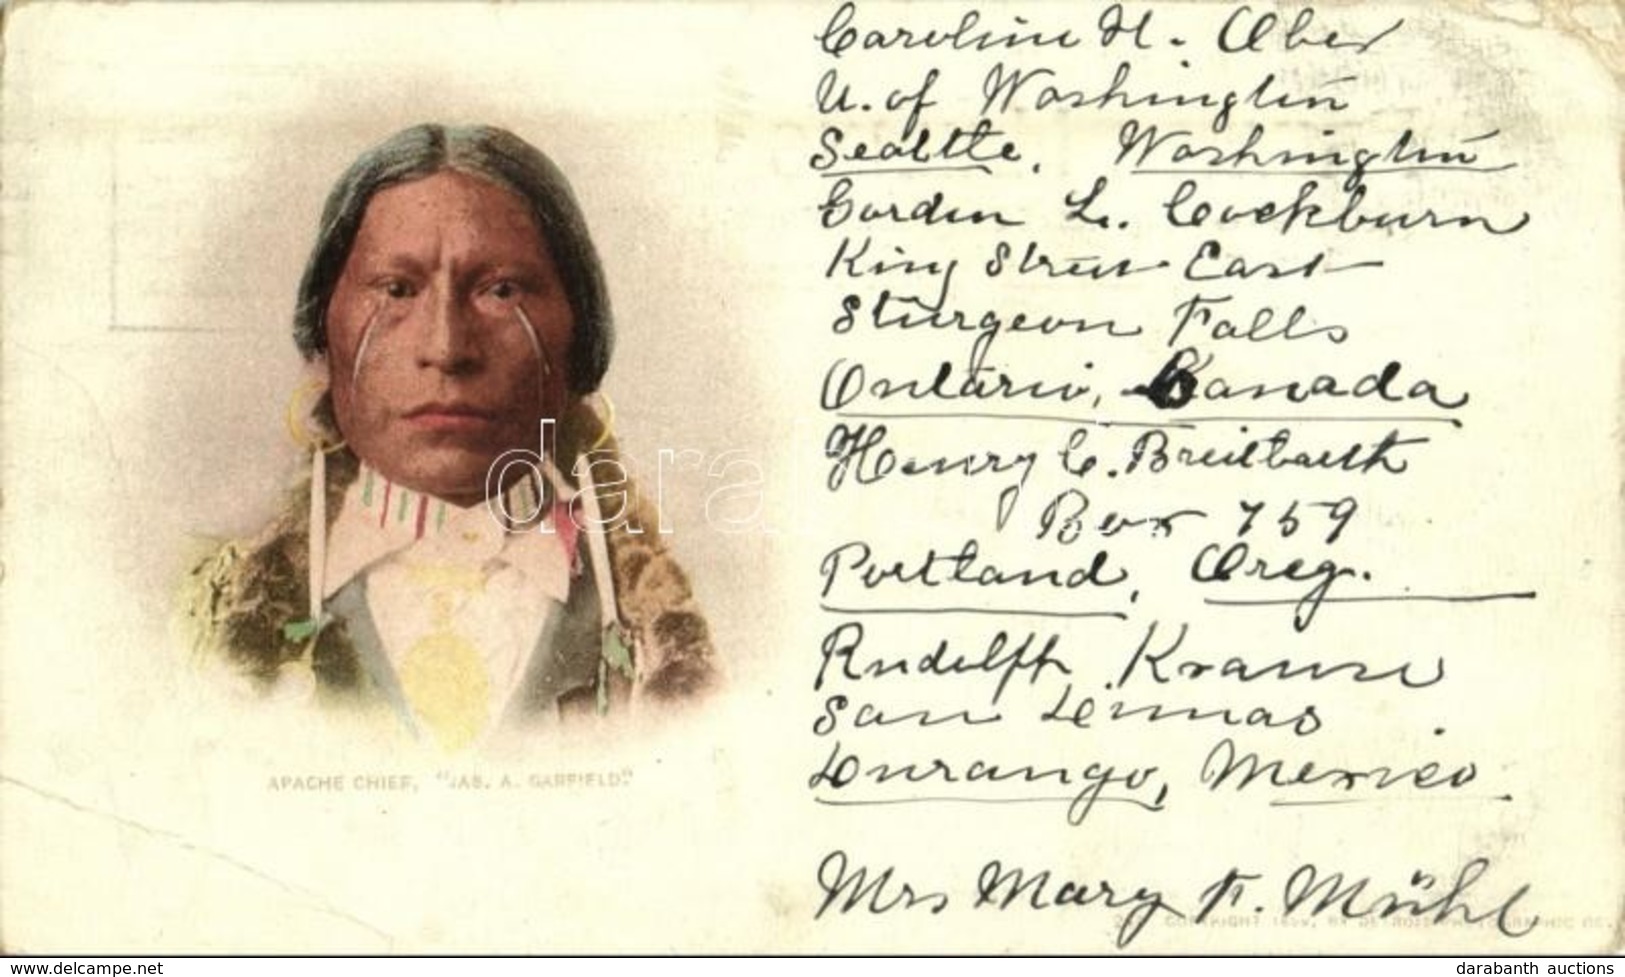 Caroline H. Ober
U. of Washington
Seattle, Washington
Gordon L. Cockburn
King Street East
Sturgeon Falls
Ontario, Canada
Henry C. Breitbarth
Box 759
Portland, Oreg.
Rudolph Krause
San Dimas
Durango, Mexico
Mrs Mary F. Mühl
APACHE CHIEF, "JAS. A. GARFIELD."
COPYRIGHT 1899, BY DETROIT PHOTOGRAPHIC CO.
darabanth auctions